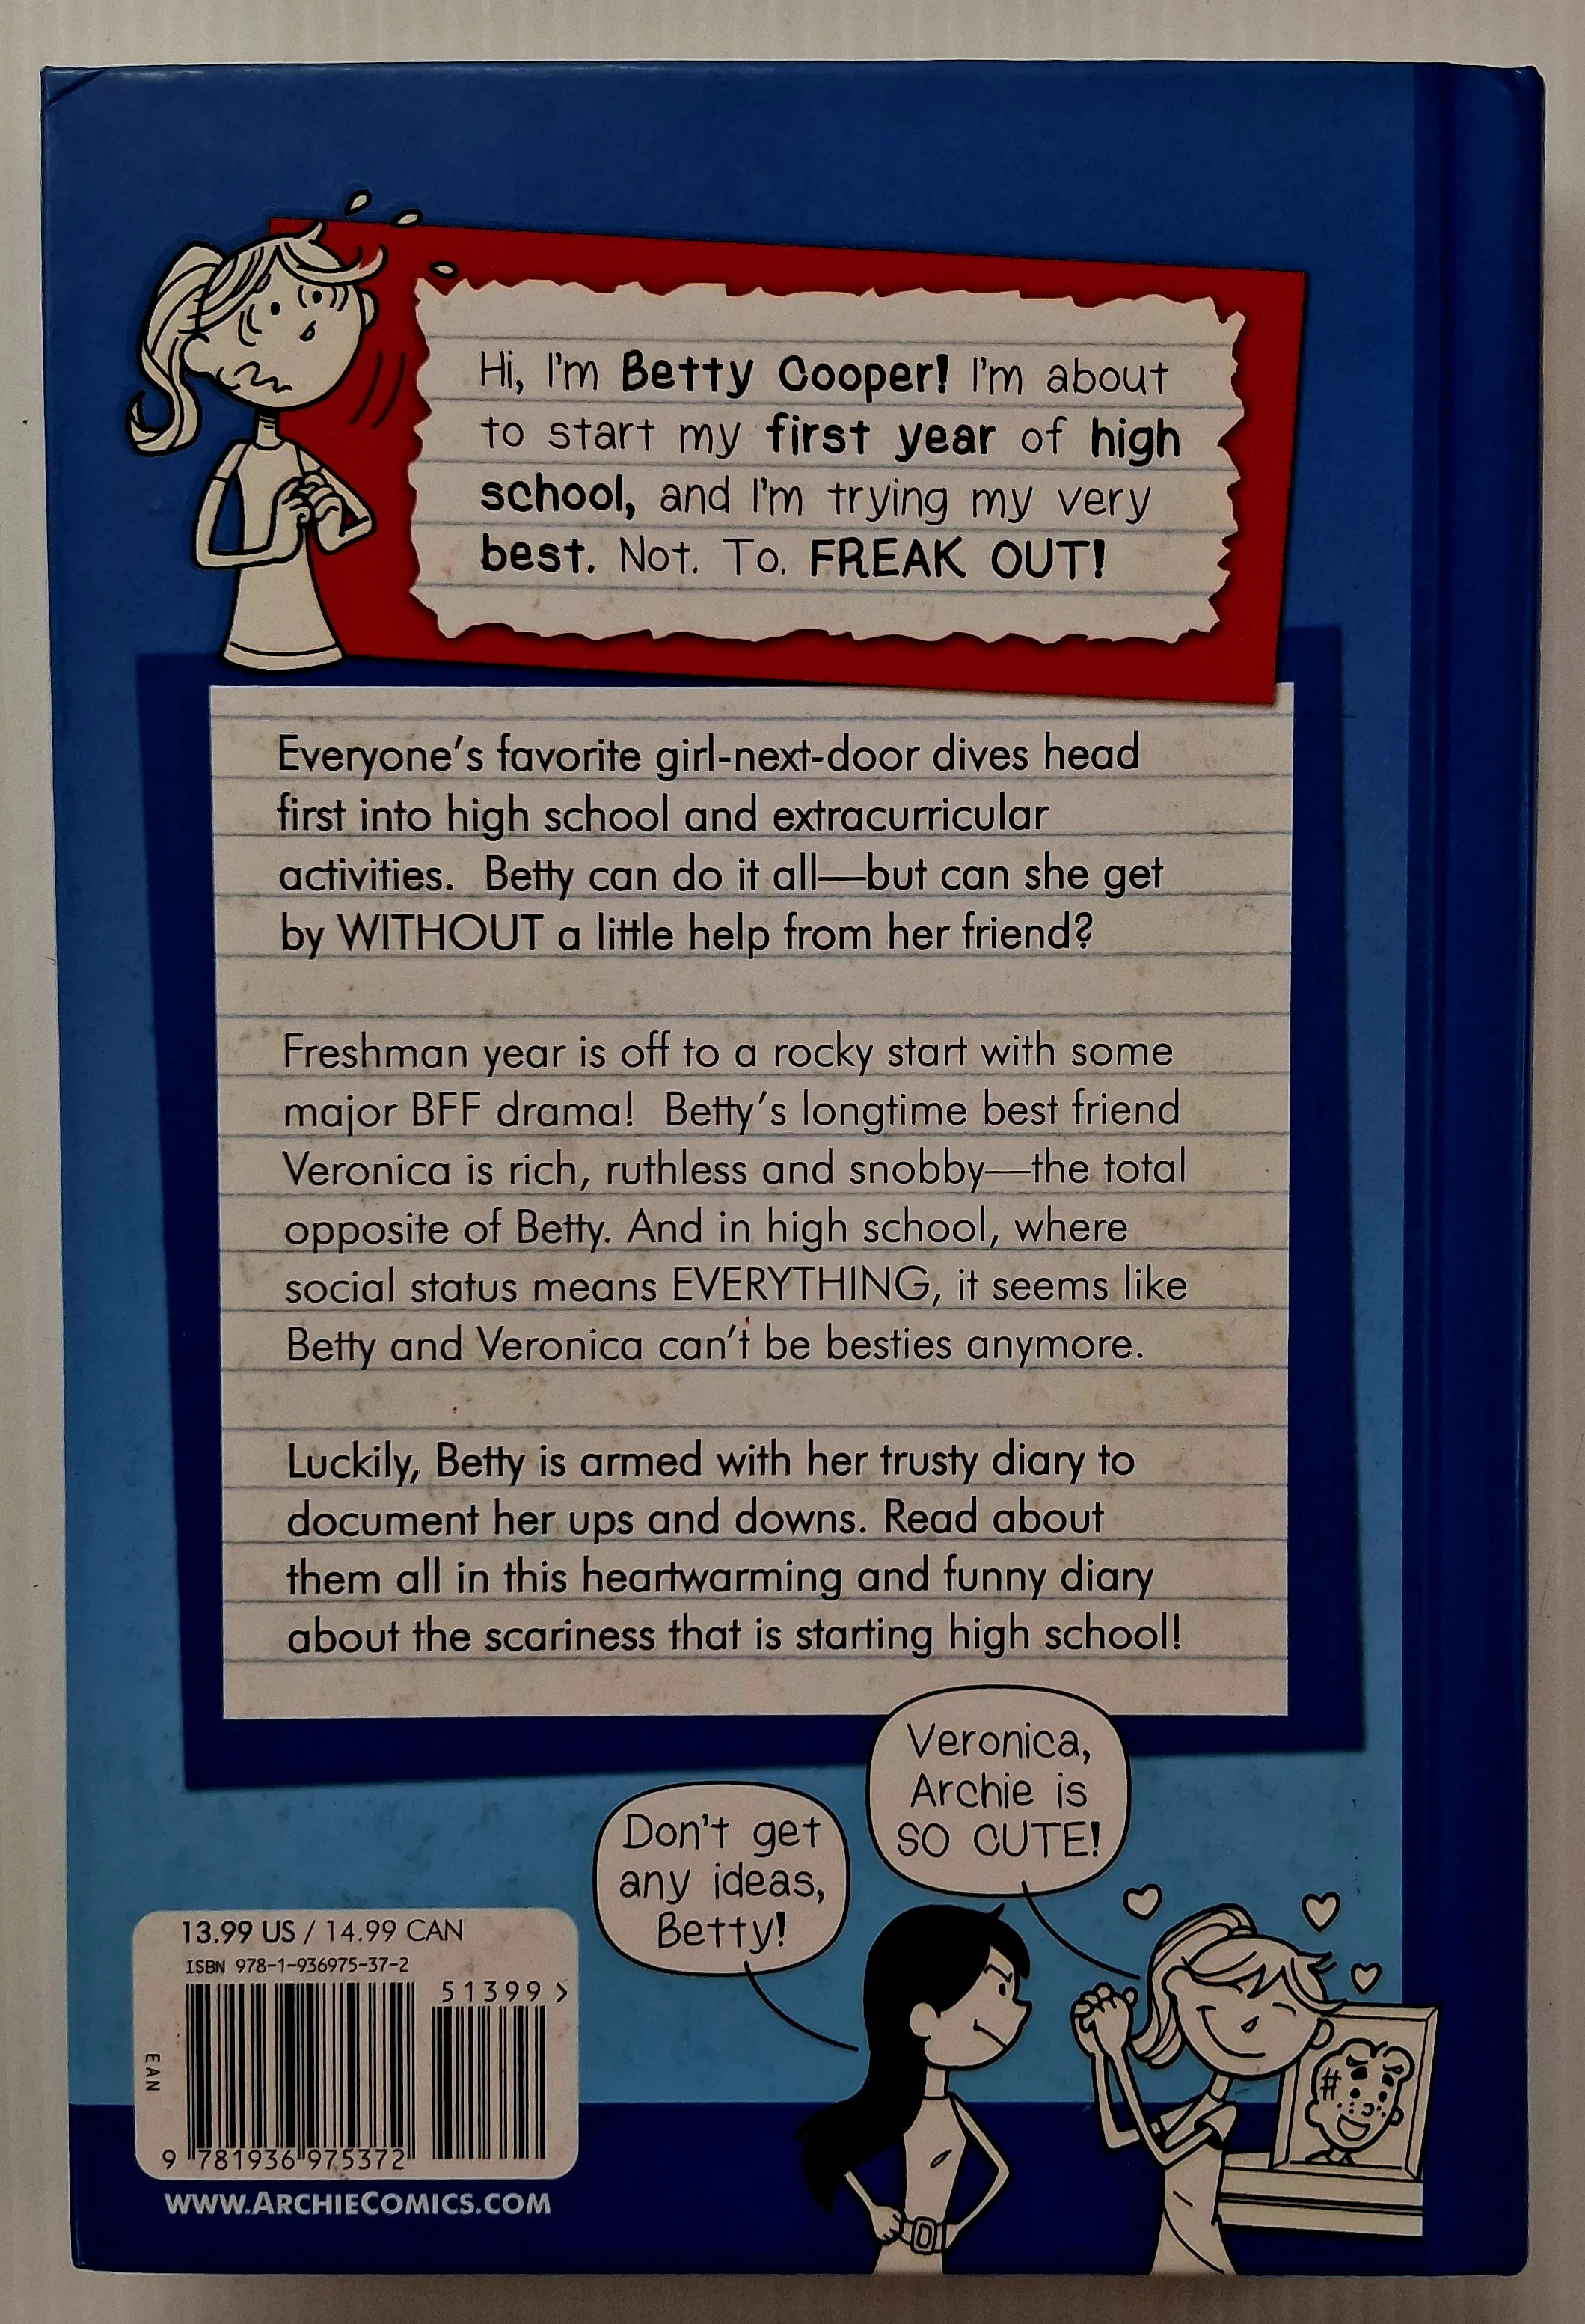 Hi, I'm Betty Cooper! I'm about
to start my first year of high
school, and I'm trying my very
best. Not. To. FREAK OUT!
Everyone's favorite girl-next-door dives head
first into high school and extracurricular
activities.  Betty can do it all—but can she get
by WITHOUT a little help from her friend?
Freshman year is off to a rocky start with some
major BFF drama!  Betty's longtime best friend
Veronica is rich, ruthless and snobby—the total
opposite of Betty. And in high school, where
social status means EVERYTHING, it seems like
Betty and Veronica can't be besties anymore.
Luckily, Betty is armed with her trusty diary to
document her ups and downs. Read about
them all in this heartwarming and funny diary
about the scariness that is starting high school!
Veronica,
Archie is
SO CUTE!
Don't get
any ideas,
Betty!
13.99 US / 14.99 CAN
ISBN 978-1-936975-37-2
51399 >
EAN
9 781936 975372
WWW.ARCHIECOMICS.COM